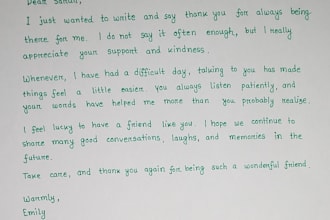 Dear
I just wanted to write and say thank you for always being
there for me. I do not say it often enough, but I really
appreciate your support and kindness.
Whenever, I have had a difficult day, talking to you has made
things feel a little easier. you always listen patiently, and
your words have helped me more than you probably realise.
I feel lucky to have a friend like you. I hope we continue to
share many good conversations, laughs, and memories in the
future.
Take care, and thank you again for being such a wonderful friend.
Warmly,
Emily